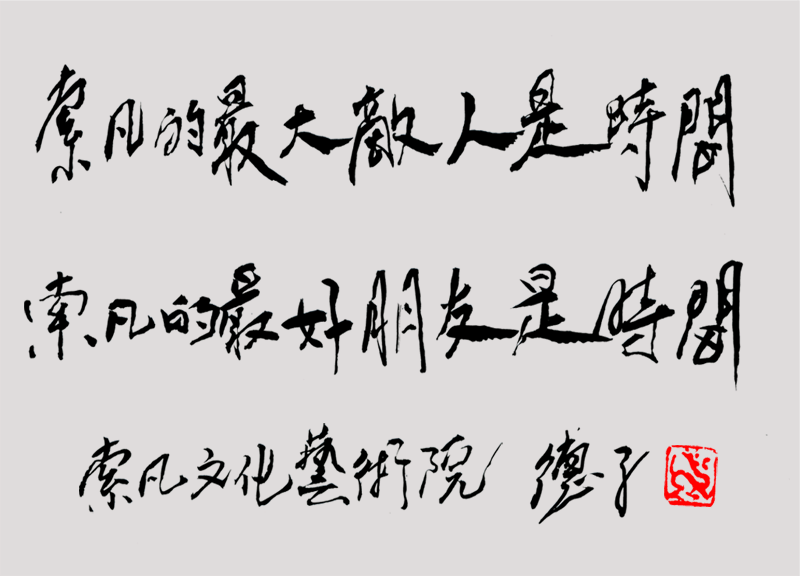 索凡的最大敵人是時間
索凡的最好朋友是時間
索凡文化藝術院 德子